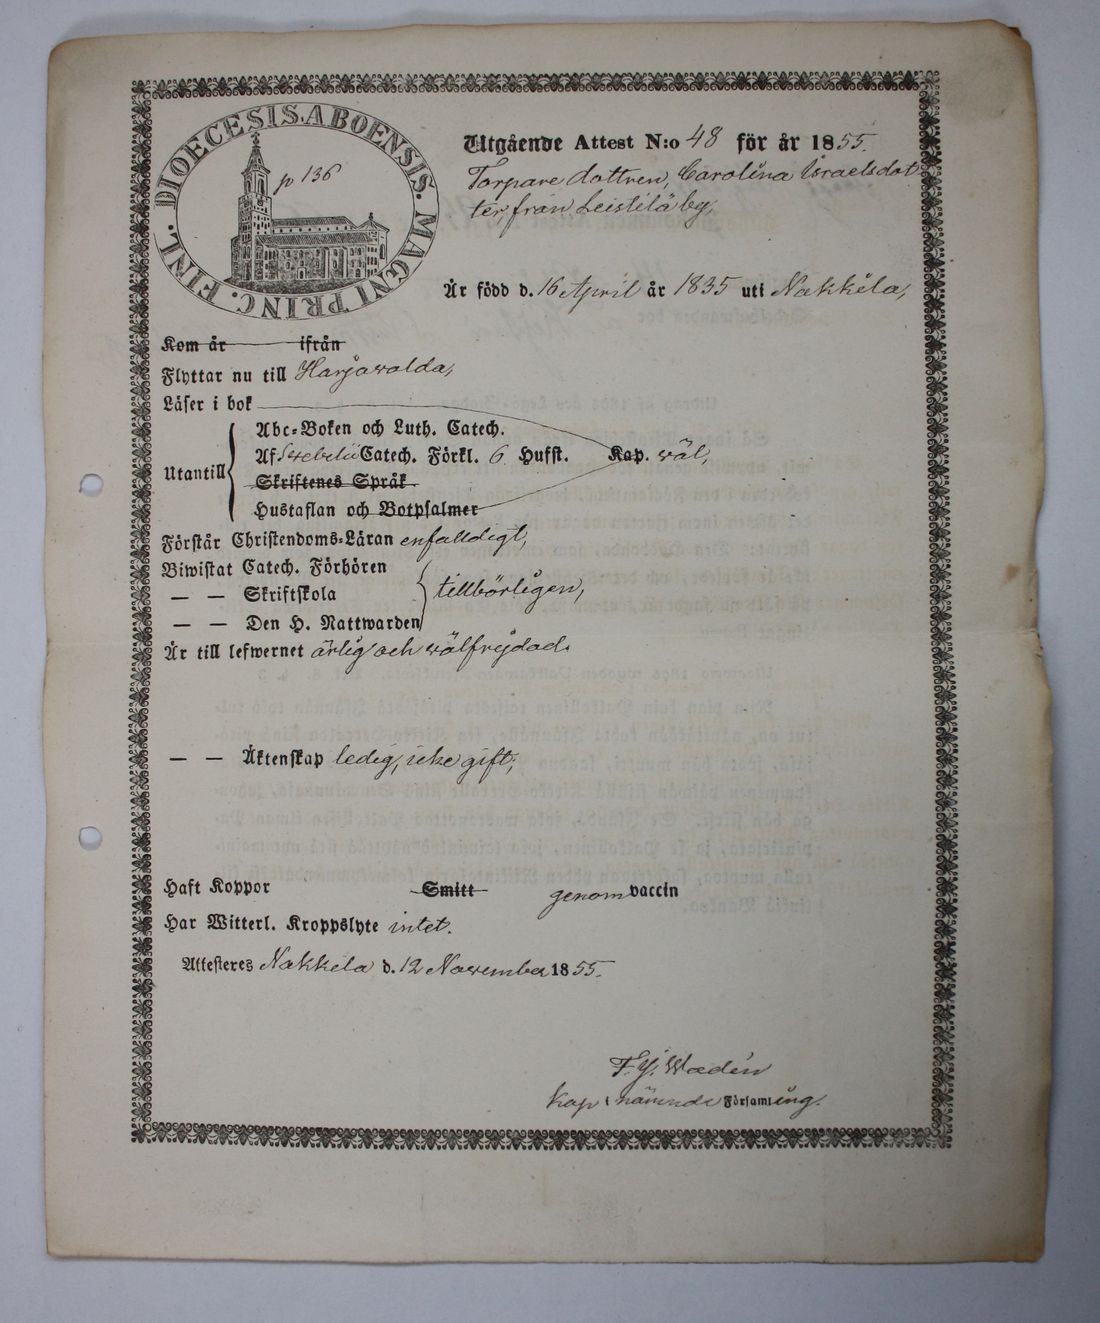 DIOECESIS. ABOENSIS. MAGNI PRINC. FINL.
p 136
Utgående Attest N:o 48 för år 1855.
Torpare dottren, Carolina Israelsdot-
ter från Leistilä by,
Är född d. 16 April år 1835 uti Nakkila,
Kom år ifrån
Flyttar nu till Harjawalda,
Läser i bok
Abc-Boken och Luth. Catech.
Utantill Af Swebelii Catech. Förkl. 6 Hufst. Kap. väl,
Skriftenes Språk
Hustaflan och Botpsalmer
Förstår Christendoms-Läran enfaldigt,
Biwistat Catech. Förhören
— — Skriftskola tillbörligen,
— — Den H. Nattwarden
Är till lefwernet ärlig och välfrejdad.
— — Äktenskap ledig, icke gift,
Haft Koppor Smitt genom vaccin
Har Witterl. Kroppslyte intet.
Attesteres Nakkila d. 12 November 1855.
Wadén
Kap i nämnde Församling.